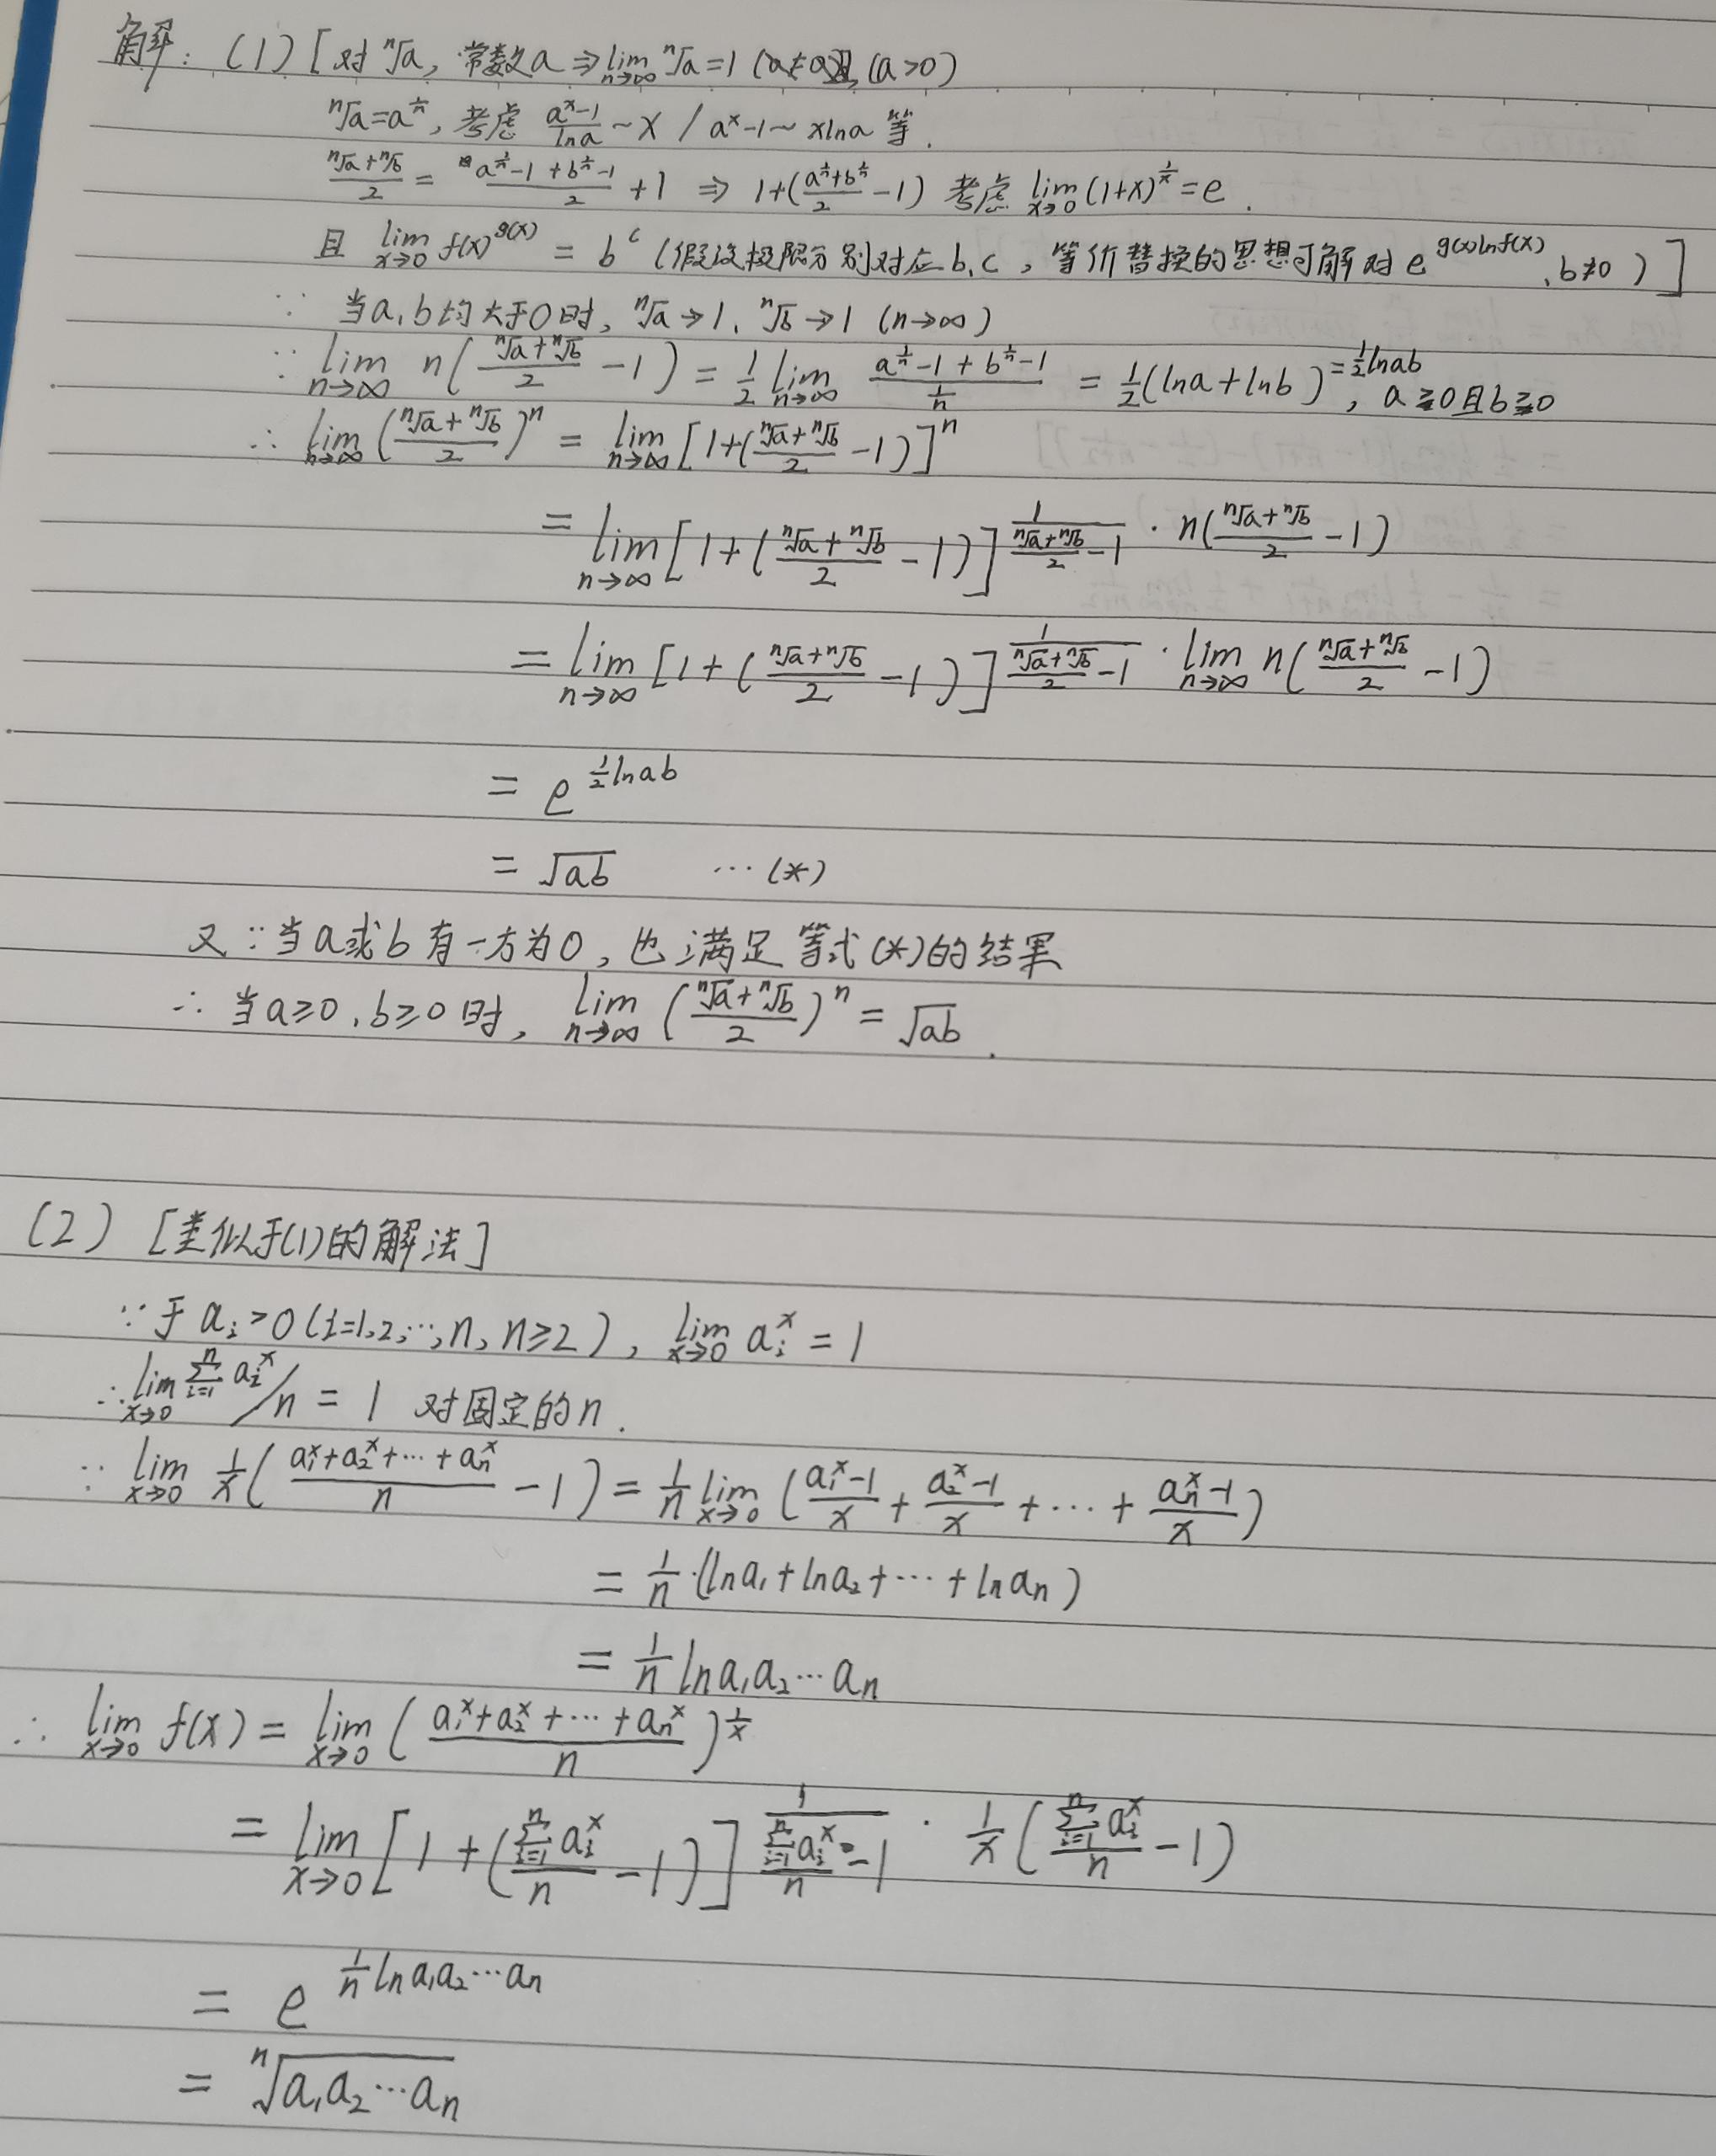 解：(1) [对 ⁿ√a，常数a ⇒ lim_{n→∞} ⁿ√a = 1 (a>0)
ⁿ√a = a^{1/n}，考虑 (a^x-1)/lna ~ x / a^x-1 ~ xlna 等.
(ⁿ√a+ⁿ√b)/2 = (a^{1/n}-1+b^{1/n}-1)/2 + 1 ⇒ 1+((a^{1/n}+b^{1/n})/2 -1) 考虑 lim_{x→0} (1+x)^{1/x} = e.
且 lim_{x→0} f(x)^{g(x)} = b^c (假设极限分别对应b,c，等价替换的思想可解对 e^{g(x)lnf(x)}, b≠0)]
∵ 当a,b均大于0时，ⁿ√a→1, ⁿ√b→1 (n→∞)
∵ lim_{n→∞} n((ⁿ√a+ⁿ√b)/2 -1) = 1/2 lim_{n→∞} (a^{1/n}-1+b^{1/n}-1)/(1/n) = 1/2(lna+lnb) = 1/2 lnab, a≩0且b≩0
∴ lim_{n→∞} ((ⁿ√a+ⁿ√b)/2)^n = lim_{n→∞} [1+((ⁿ√a+ⁿ√b)/2 -1)]^n
= lim_{n→∞} [1+((ⁿ√a+ⁿ√b)/2 -1)]^{1/((ⁿ√a+ⁿ√b)/2 -1) · n((ⁿ√a+ⁿ√b)/2 -1)}
= lim_{n→∞} [1+((ⁿ√a+ⁿ√b)/2 -1)]^{1/((ⁿ√a+ⁿ√b)/2 -1) · lim_{n→∞} n((ⁿ√a+ⁿ√b)/2 -1)}
= e^{1/2 lnab}
= √ab ···(*)
又∵当a或b有一方为0，也满足等式(*)的结果
∴ 当a≥0,b≥0时，lim_{n→∞} ((ⁿ√a+ⁿ√b)/2)^n = √ab.
(2) [类似于(1)的解法]
∵于 a_i>0 (i=1,2,…,n, n≥2), lim_{x→0} a_i^x = 1
∴ lim_{x→0} ∑_{i=1}^{n} a_i^x/n = 1 对固定的n.
∵ lim_{x→0} 1/x((a_1^x+a_2^x+···+a_n^x)/n -1) = 1/n lim_{x→0} ((a_1^x-1)/x + (a_2^x-1)/x + ··· + (a_n^x-1)/x)
= 1/n·(lna_1+lna_2+···+lna_n)
= 1/n lna_1a_2···a_n
∴ lim_{x→0} f(x) = lim_{x→0} ((a_1^x+a_2^x+···+a_n^x)/n)^{1/x}
= lim_{x→0} [1+((∑_{i=1}^{n} a_i^x)/n -1)]^{1/((∑_{i=1}^{n} a_i^x)/n -1) · 1/x((∑_{i=1}^{n} a_i^x)/n -1)}
= e^{1/n lna_1a_2···a_n}
= ⁿ√(a_1a_2···a_n)